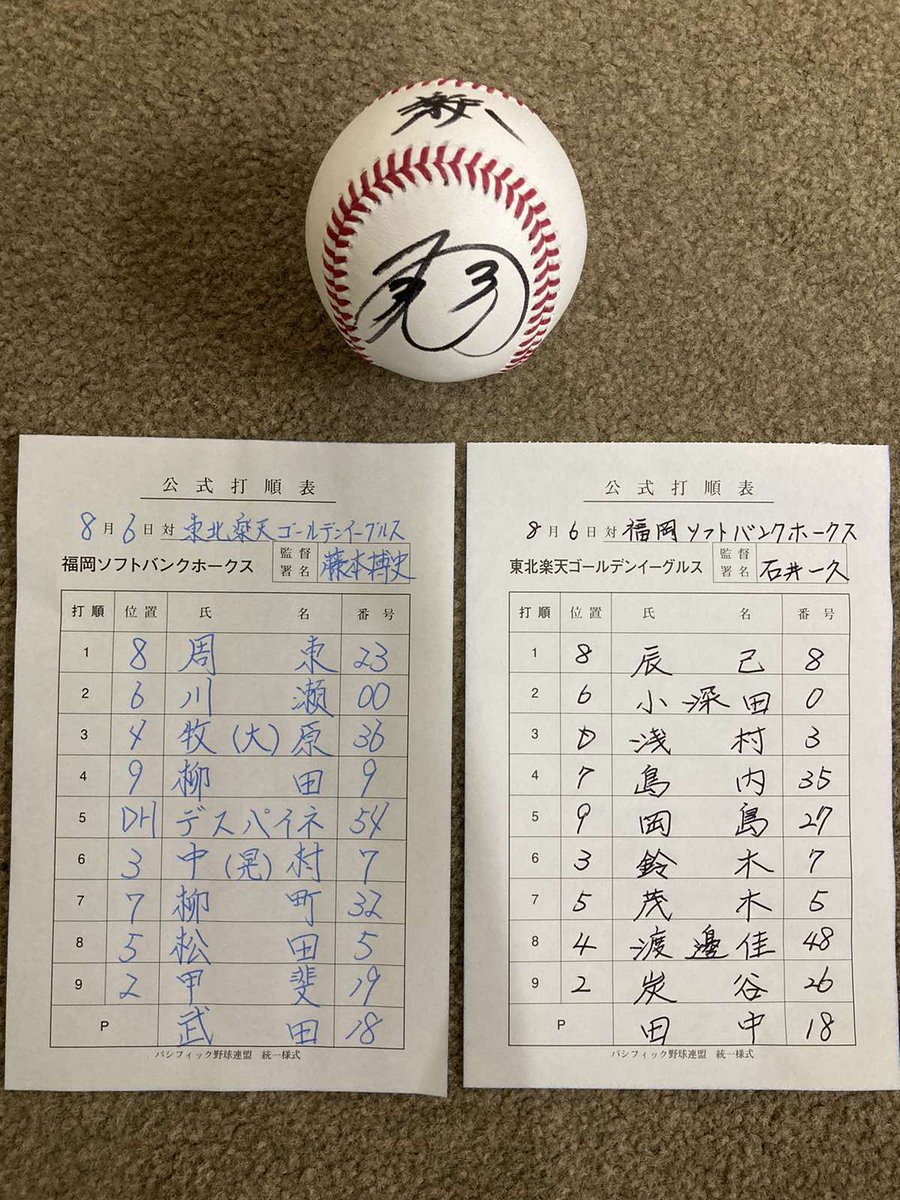 公式打順表
8月6日対 東北楽天ゴールデンイーグルス
福岡ソフトバンクホークス 監督署名 藤本博史
打順 位置 氏名 番号
1 8 周東 23
2 6 川瀬 00
3 4 牧(大)原 36
4 9 柳田 9
5 DH デスパイネ 54
6 3 中(晃)村 7
7 7 柳町 32
8 5 松田 5
9 2 甲斐 19
P 武田 18
パシフィック野球連盟 統一様式
公式打順表
8月6日対 福岡ソフトバンクホークス
東北楽天ゴールデンイーグルス 監督署名 石井一久
打順 位置 氏名 番号
1 8 辰己 8
2 6 小深田 0
3 D 浅村 3
4 7 島内 35
5 9 岡島 27
6 3 鈴木 7
7 5 茂木 5
8 4 渡邊佳 48
9 2 炭谷 26
P 田中 18
パシフィック野球連盟 統一様式